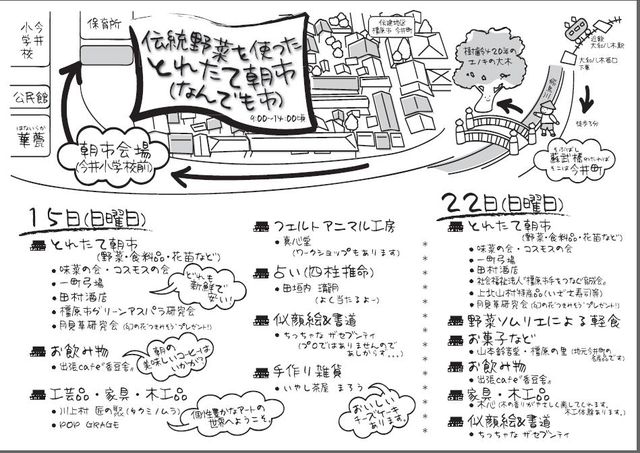 今井
小学校
保育所
公民館
はないらか
華甍
伝統野菜を使った
とれたて朝市
(なんでも市)
9:00〜14:00頃
伝建地区
橿原市 今井町
樹齢420年の
エノキの大木
近鉄
大和八木駅
大和八木西口
下車
飛鳥川
徒歩3分
そぶばし
蘇武橋をわたれば
そこは
今井町
朝市会場
(今井小学校前)
15日(日曜日)
とれたて朝市
(野菜・食料品・花苗など)
・味菜の会・コスモスの会
・一町弓場
・田村酒店
・橿原市グリーンアスパラ研究会
・月見草研究会
どれも
新鮮で
安い!
お飲み物
・出張cafe"香豆舎"
朝の
美味しいコーヒーは
いかが?
工芸品・家具・木工品
・川上村 匠の聚(タクミノムラ)
・POP GRAGE
個性豊かなアートの
世界へようこそ。
フェルトアニマル工房
・真心堂
(ワークショップもあります)
占い(四柱推命)
・田垣内
(よく当たるよ〜)
似顔絵&書道
・ちっちゃな ガゼブンティ
(プロではありませんので
あしからず...)
手作り雑貨
・いやし茶屋 まろう
おいしい
チーズケーキ
あります。
22日(日曜日)
とれたて朝市
(野菜・食料品・花苗など)
・味菜の会・コスモスの会
・一町弓場
・田村酒店
・社会福祉法人"橿原市手をつなぐ育成会"
・上北山村特産品
・月見草研究会
野菜ソムリエによる軽食
お菓子など
・山本鈴音堂・橿原の里(地元今井町の
名品です)
お飲み物
・出張cafe"香豆舎"
家具・木工品
・木心(木の香りがやさしく癒してくれます。
木工体験あります。)
似顔絵&書道
・ちっちゃな ガゼブンティ